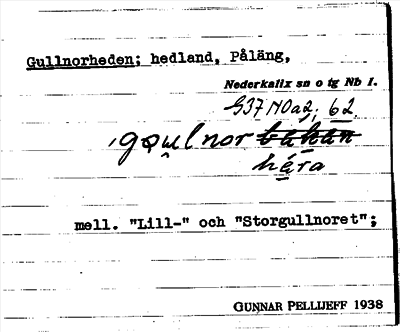 Gullnorheden; hedland, Påläng,
Nederkalix sn o tg Nb l.
S37 NOa2; 62.
hera
mell. "Lill-" och "Storgullnoret";
GUNNAR PELLIJEFF 1938